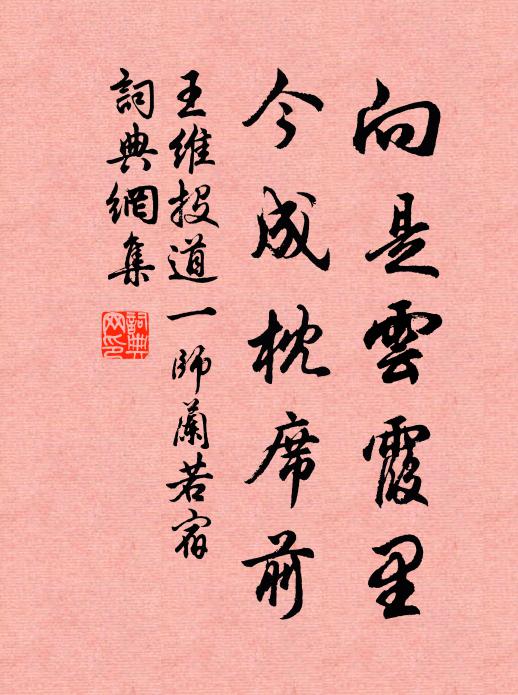 向是雲霞里
今成枕席前
王維投道一師蘭若宿
詞典網集
詞典網印